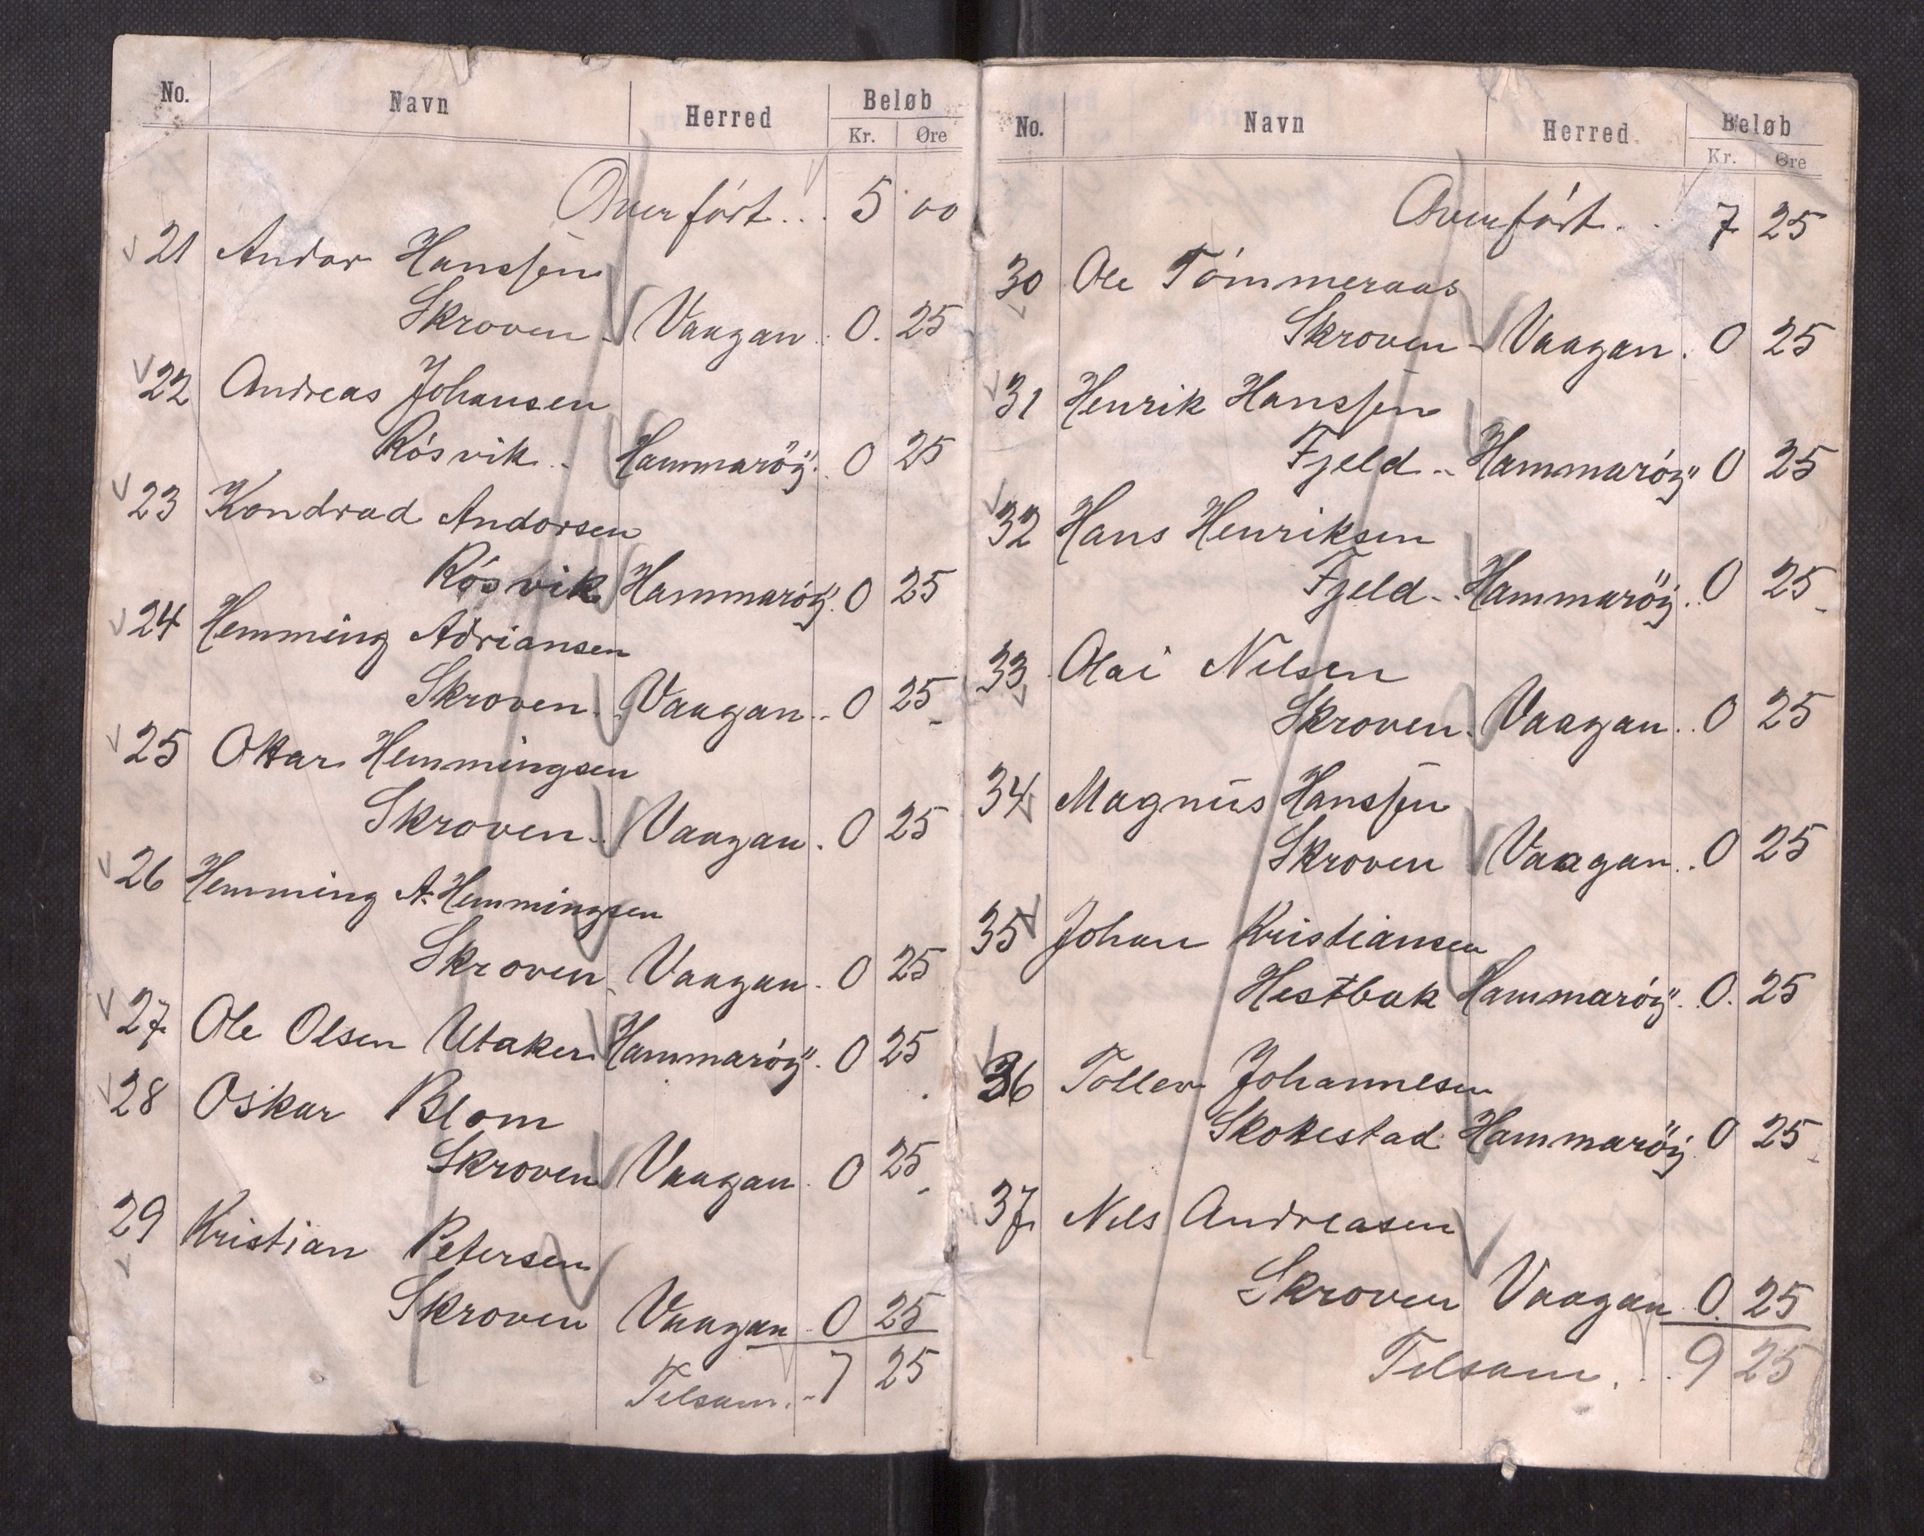 No. Navn Herred Beløb
Kr. Øre
Overført... 5 00
21 Andor Hanssen
Skroven - Vaagan . 0. 25
22 Andreas Johansen
Rósvik .. Hammaröÿ. 0 25
23 Kondrad Andorsen
Rósvik Hammaróÿ. 0 25
24 Hemming Adriansen
Skroven. Vaagan .. 0 25
25 Ottar Hemmingsen
Skroven. Vaagan . 0 25
26 Hemming A. Hemmingsen
Skroven Vaagan . 0 25
27 Ole Olsen Utaker Hammaróÿ. 0 25
28 Oskar Blom
Skroven Vaagan . 0 25
29 Kristian Petersen
Skroven Vaagan . 0 25
Tilsam. .. 7 25
No. Navn Herred Beløb
Kr. Øre
Overfórt. . 7 25
30 Ole Tómmeraas
Skroven - Vaagan . 0 25
31 Henrik Hanssen
Fjeld .. Hammaróÿ 0 25
32 Hans Henriksen
Fjeld .. Hammaröÿ. 0 25
33 Olai Nilsen
Skroven. Vaagan . 0 25
34 Magnus Hanssen
Skroven Vaagan .. 0 25
35 Johan Kristiansen
Hestbak Hammaróÿ. 0. 25
36 Tollev Johannesen
Skottestad Hammaröÿ 0 25
37 Nils Andreasen
Skroven Vaagan . 0. 25
Tilsam. .. 9 25